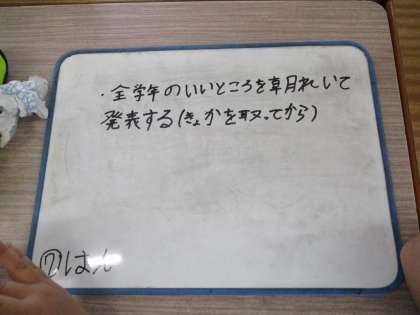 ・全学年のいいところを朝れいで
発表する(きょかを取ってから)
⑦はん